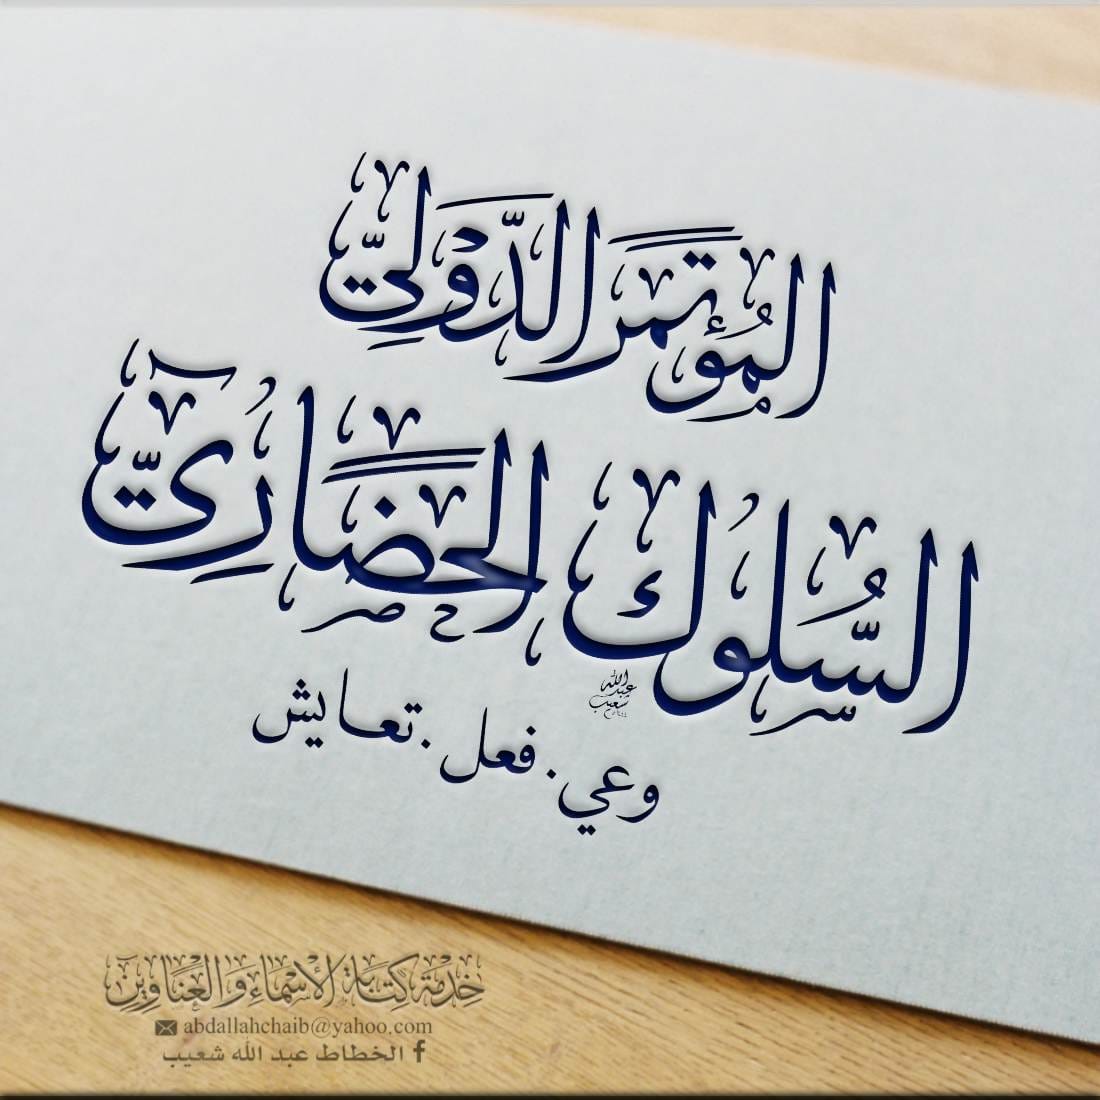 المُؤتَمَر الدَّوْلِيّ
السُّلُوك الحَضَارِيّ
وعي . فعل . تعايش
عبد الله شعيب
خدمة كتابة الأسماء والعناوين
abdallahchaib@yahoo.com
الخطاط عبد الله شعيب